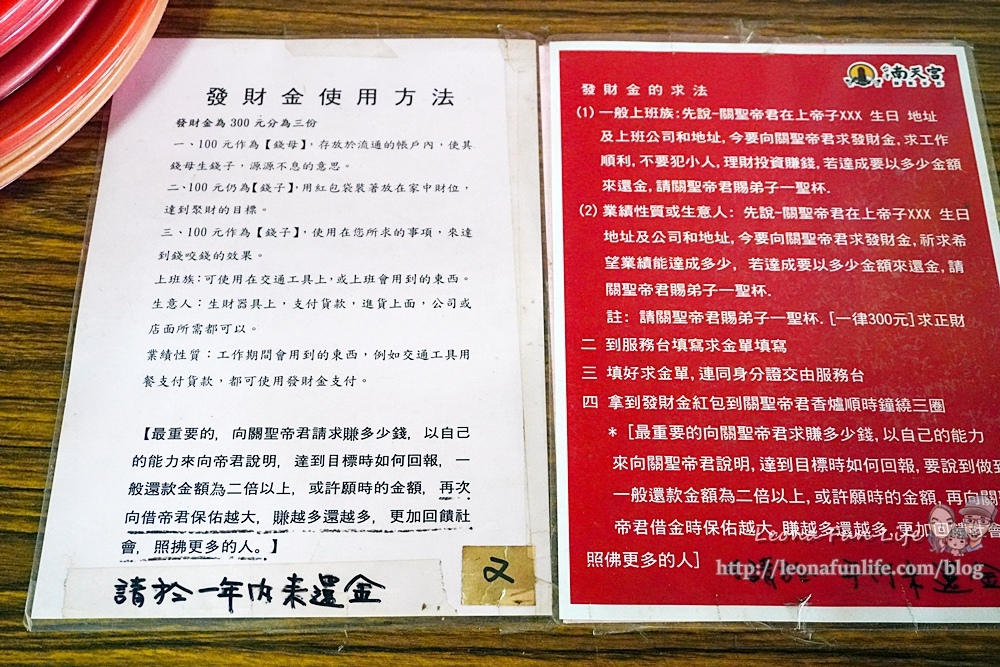 發財金使用方法
發財金為300元分為三份
一、100元作為【錢母】,存放於流通的帳戶內,使其
錢母生錢子,源源不息的意思。
二、100元仍為【錢子】,用紅包袋裝著放在家中財位,
達到聚財的目標。
三、100元作為【錢子】,使用在您所求的事項,來達
到錢咬錢的效果。
上班族:可使用在交通工具上,或上班會用到的東西。
生意人:生財器具上,支付貨款,進貨上面,公司或
店面所需都可以。
業績性質:工作期間會用到的東西,例如交通工具用
餐支付貨款,都可使用發財金支付。
【最重要的,向關聖帝君請求賺多少錢,以自己
的能力來向帝君說明,達到目標時如何回報,一
般還款金額為二倍以上,或許願時的金額,再次
向借帝君保佑越大,賺越多還越多,更加回饋社
會,照拂更多的人。】
請於一年內來還金
又
南天宮
發財金的求法
(1)一般上班族:先說-關聖帝君在上帝子XXX 生日 地址
及上班公司和地址,今要向關聖帝君求發財金,求工作
順利,不要犯小人,理財投資賺錢,若達成要以多少金額
來還金,請關聖帝君賜弟子一聖杯.
(2)業績性質或生意人: 先說-關聖帝君在上帝子XXX 生日
地址及公司和地址,今要向關聖帝君求發財金,祈求希
望業績能達成多少, 若達成要以多少金額來還金,請
關聖帝君賜弟子一聖杯.
註: 請關聖帝君賜弟子一聖杯.[一律300元]求正財
二 到服務台填寫求金單填寫
三 填好求金單,連同身分證交由服務台
四 拿到發財金紅包到關聖帝君香爐順時鐘繞三圈
*[最重要的向關聖帝君求賺多少錢,以自己的能力
來向關聖帝君說明,達到目標時如何回報,要說到做到
一般還款金額為二倍以上,或許願時的金額,再向關
帝君借金時保佑越大,賺越多還越多,更加回饋社會
照佛更多的人]
Leona Fun Life
http://leonafunlife.com/blog
年內來還金